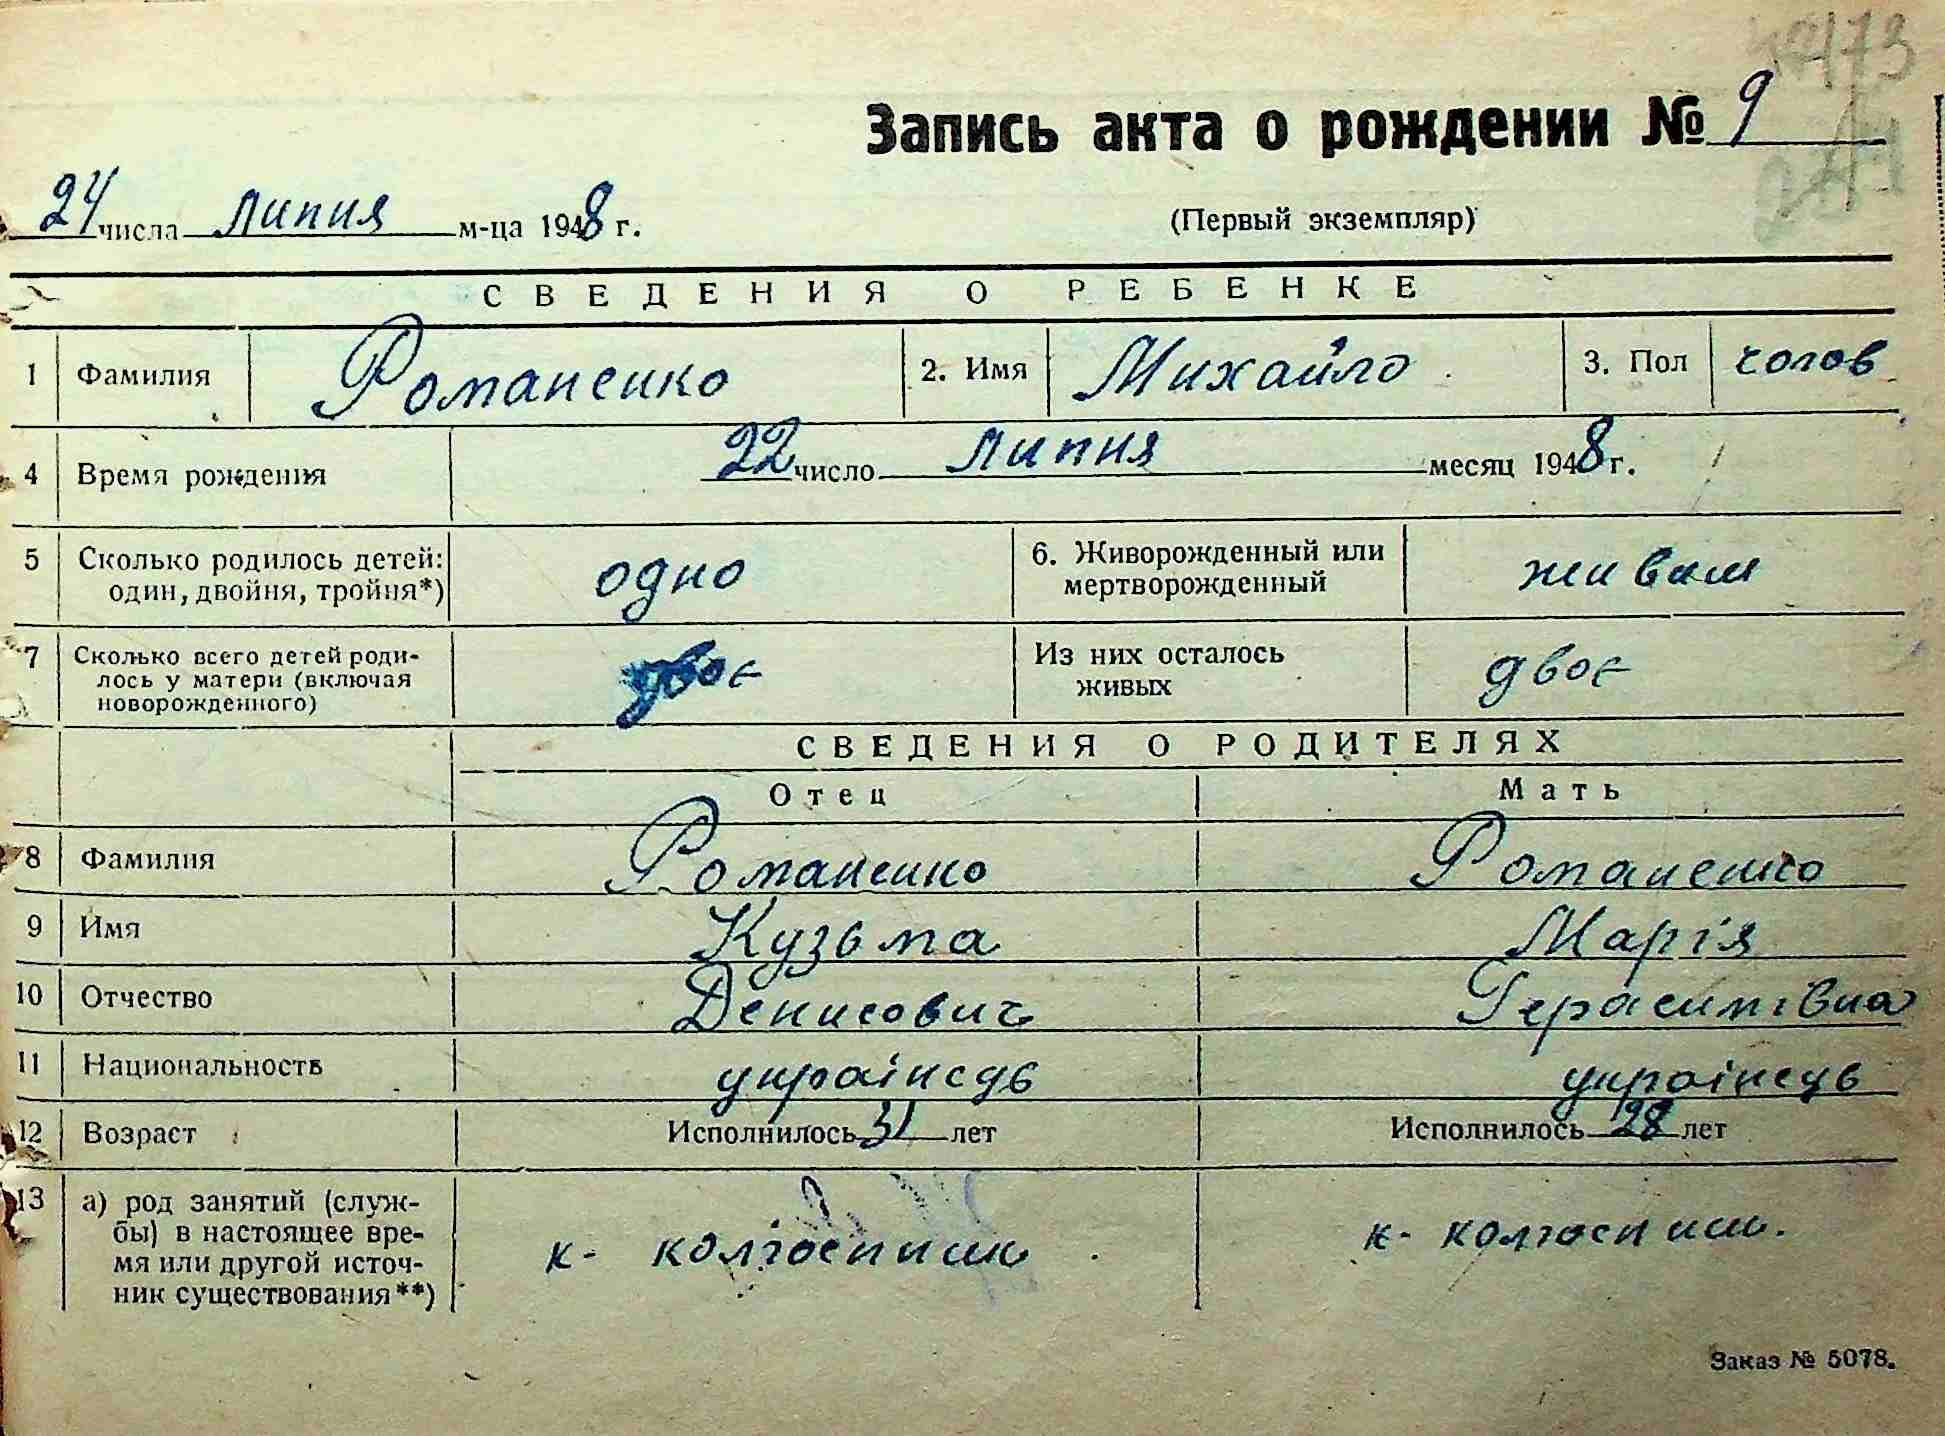 173
Запись акта о рождении № 9
24 числа липня м-ца 1948 г.
(Первый экземпляр)
СВЕДЕНИЯ О РЕБЕНКЕ
1 Фамилия Романенко 2. Имя Михайло 3. Пол чолов
4 Время рождения 22 число липня месяц 1948 г.
5 Сколько родилось детей: один, двойня, тройня*) одно 6. Живорожденный или мертворожденный живим
7 Сколько всего детей роди-
лось у матери (включая
новорожденного) двоє Из них осталось живых двоє
СВЕДЕНИЯ О РОДИТЕЛЯХ
Отец Мать
8 Фамилия Романенко Романенко
9 Имя Кузьма Марія
10 Отчество Денисович Герасимівна
11 Национальность українець українець
12 Возраст Исполнилось 31 лет Исполнилось 28 лет
13 а) род занятий (служ-
бы) в настоящее вре-
мя или другой источ-
ник существования**) к- колгоспник к- колгоспник.
Заказ № 5078.